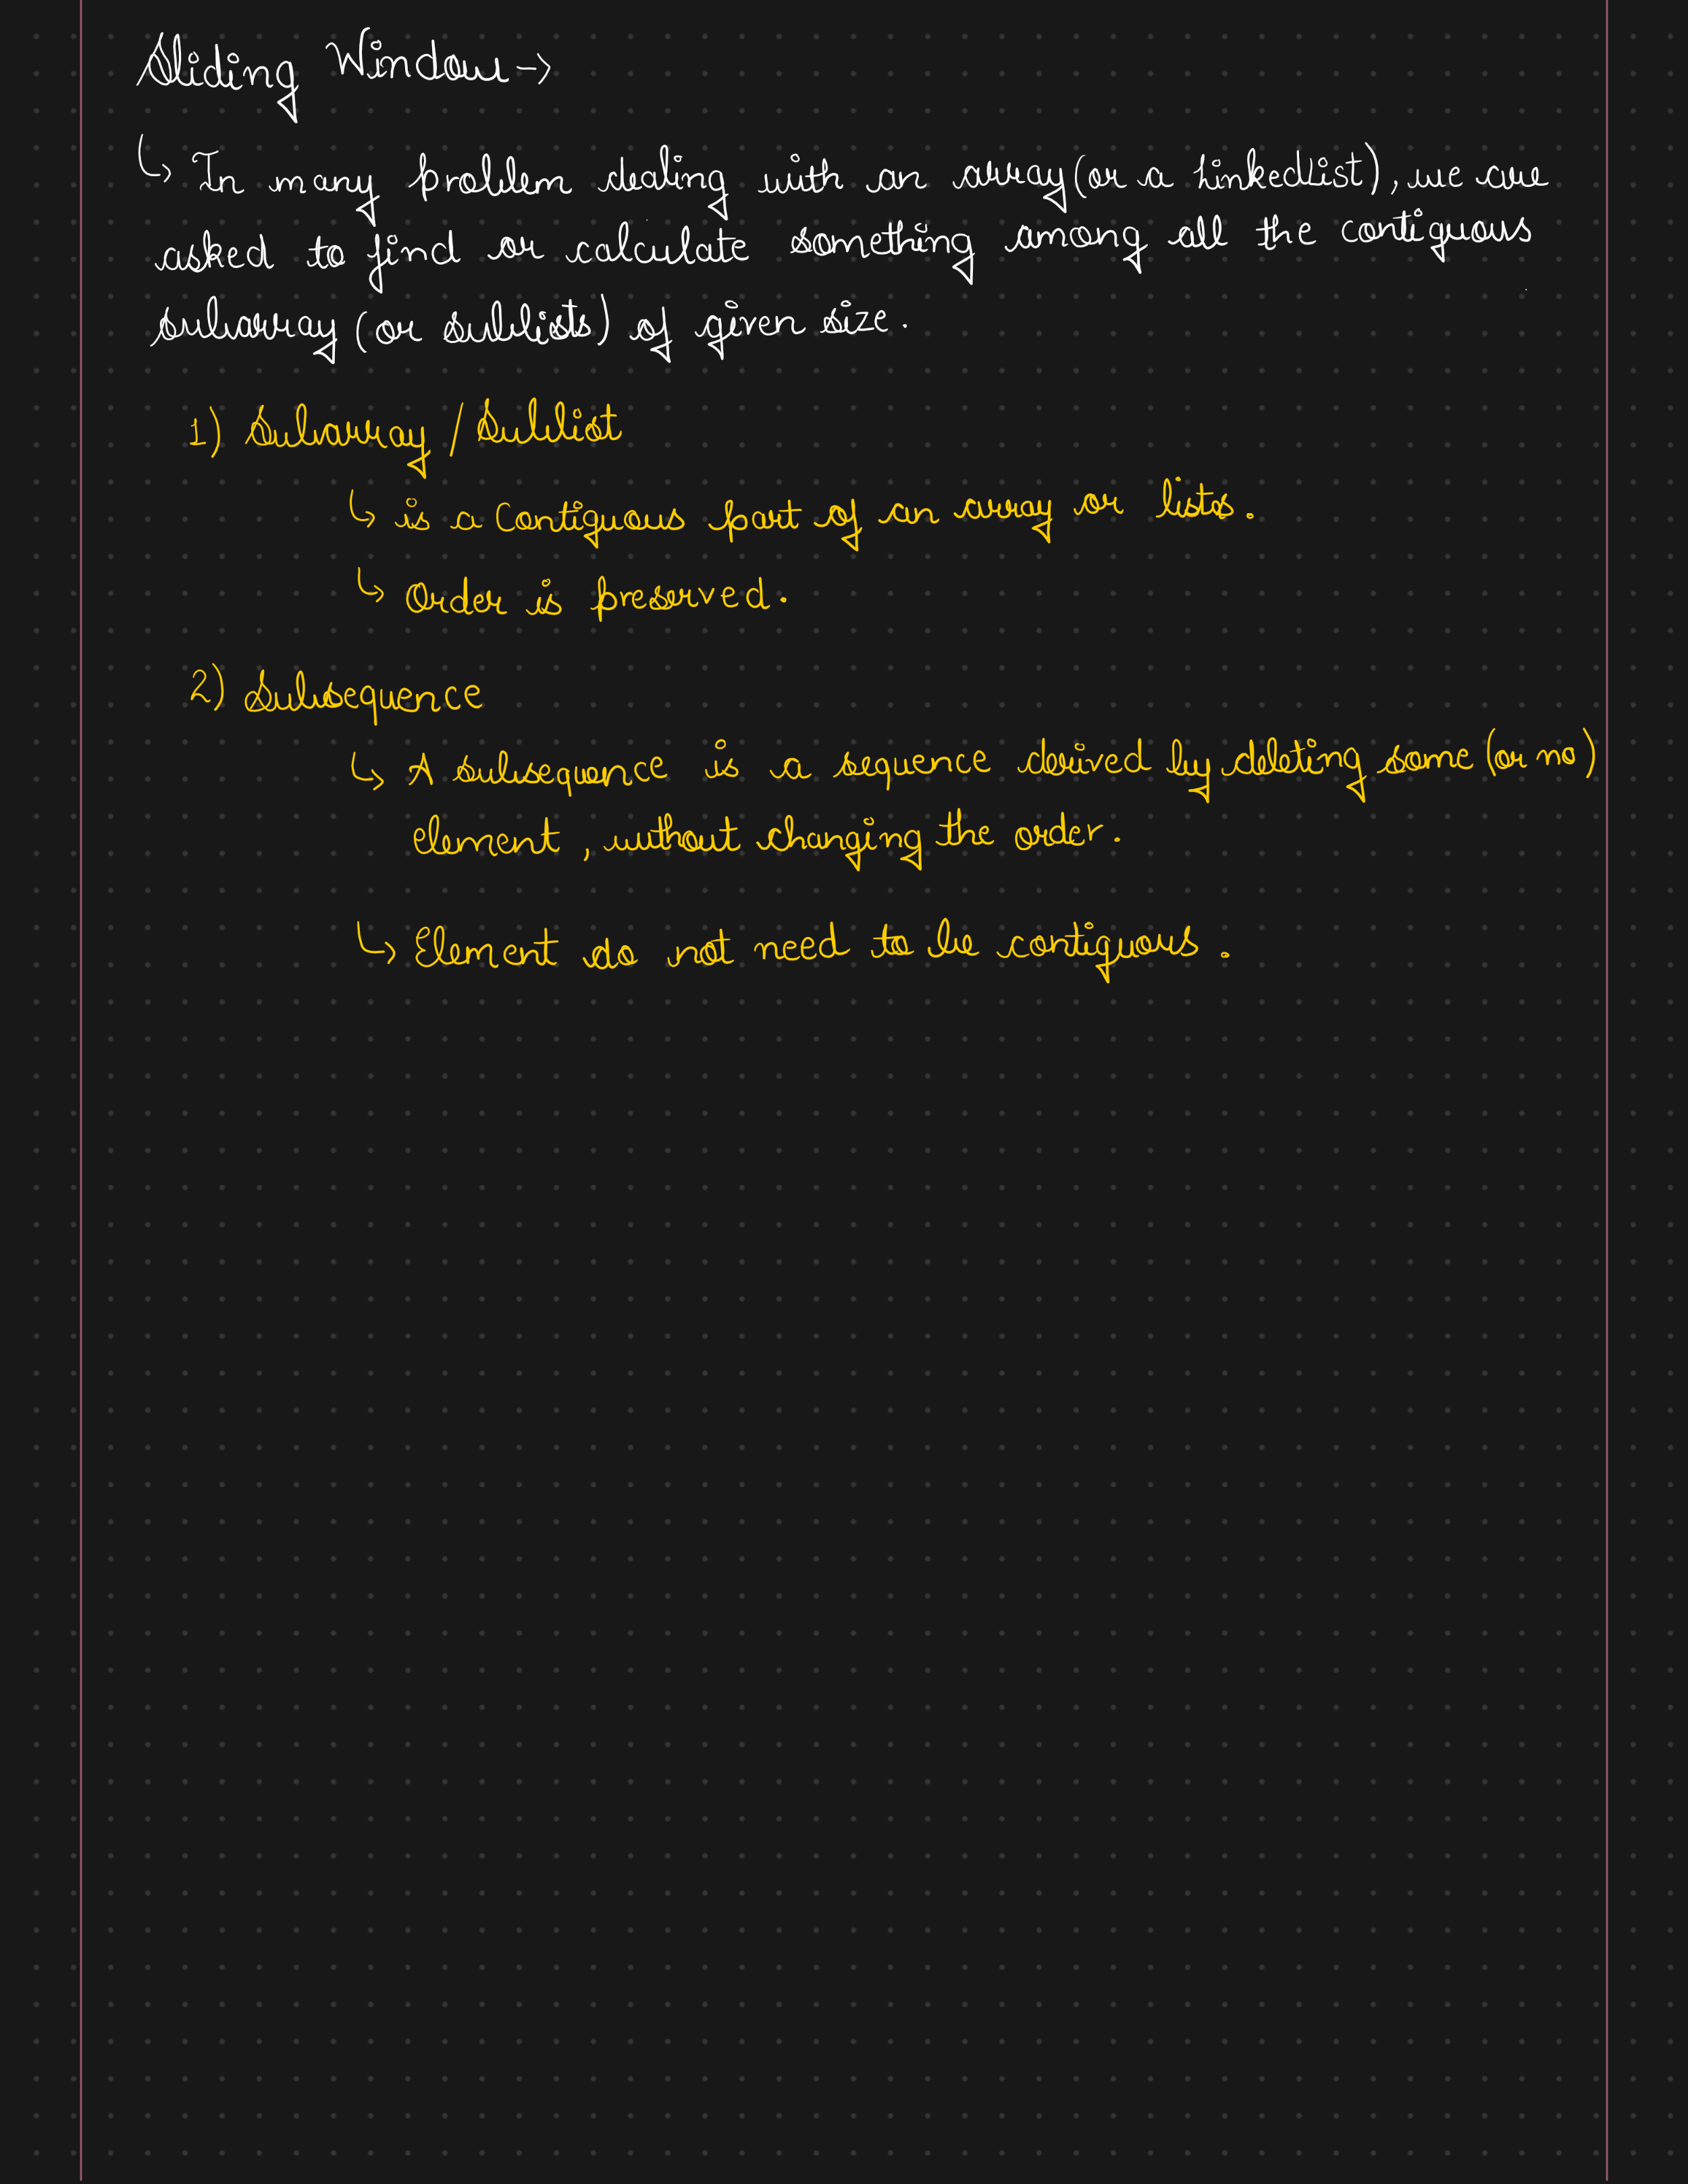 Sliding Window →
↳ In many problem dealing with an array (or a LinkedList), we are
asked to find or calculate something among all the contiguous
subarray (or sublists) of given size.
1) Subarray / Sublist
↳ is a Contiguous part of an array or lists.
↳ Order is preserved.
2) Subsequence
↳ A subsequence is a sequence derived by deleting some (or no)
element, without changing the order.
↳ Element do not need to be contiguous.